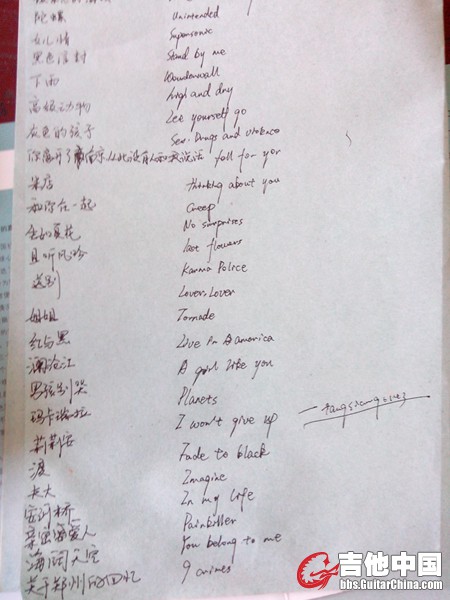 陀螺 Unintended
女儿情 Supersonic
黑色信封 Stand by me
下雨 Wonderwall
高级动物 High and dry
灰色的孩子 Let yourself go
Sex. Drugs and violence
你离开了南京从此没有人和我说话 fall for you
米店 thinking about you
和你在一起 Creep
生如夏花 No surprises
且听风吟 last flowers
送别 Karma Police
Lover. Lover
姐姐 Tornado
红与黑 Live in America
澜沧江 A girl like you
男孩别哭 Planets
玛卡瑞拉 I won't give up
莉莉安 Fade to black
渡 Imagine
长大 In my life
安河桥 Painkiller
亲密爱人 You belong to me
海阔天空 9 crimes
关于郑州的回忆
吉他中国
bbs.GuitarChina.com